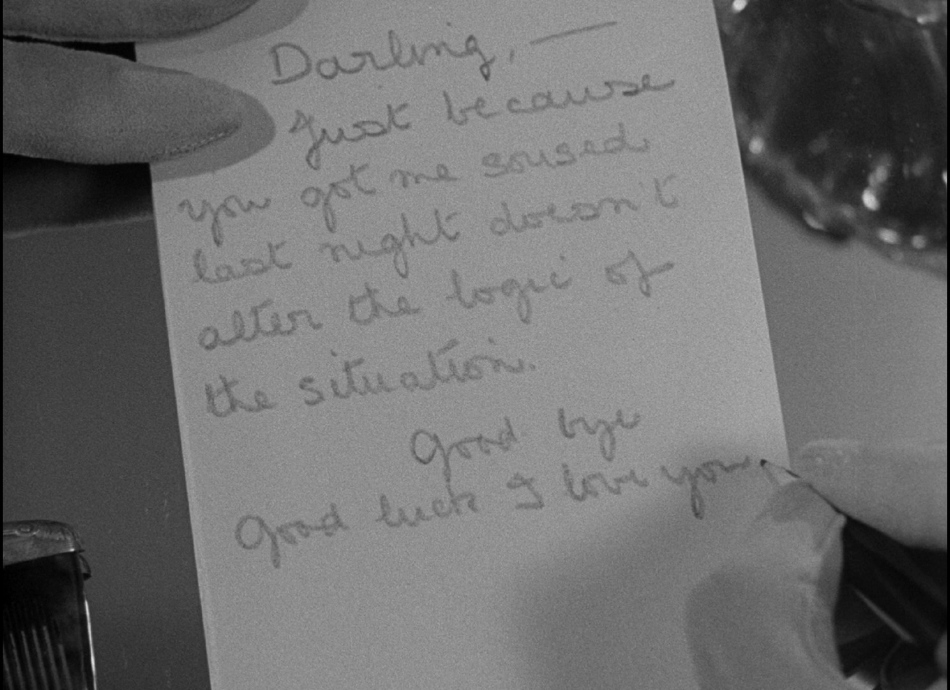 Darling, —
Just because
you got me soused
last night doesn't
alter the logic of
the situation.
Good bye
Good luck I love you